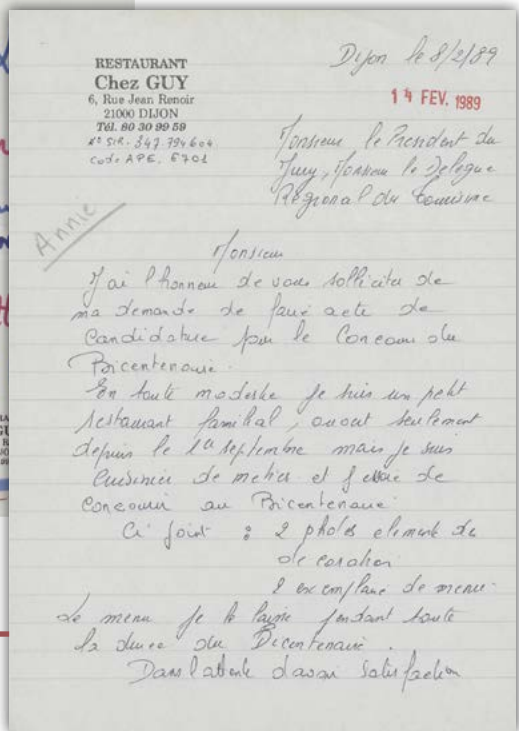 RESTAURANT
Chez GUY
6, Rue Jean Renoir
21000 DIJON
Tél. 80 30 99 59
N° SIR. 347.794604
Code APE. 6701
Dijon le 8/2/89
14 FEV. 1989
Monsieur le President du
Jury, Monsieur le Delegue
Régional du Tourisme
Annie
Monsieur
J'ai l'honneur de vous solliciter de
ma demande de faire acte de
Candidature pour le Concours du
Bicentenaire.
En toute modestie je suis un petit
restaurant familial, ouvert seulement
depuis le 1er septembre mais je suis
Cuisinier de metier et j'essaie de
Concourir au Bicentenaire
Ci joint : 2 photos element du
decoration
2 exemplaire de menu.
Le menu je le laisse pendant toute
la duree du Bicentenaire.
Dans l'attente d'avoir satisfaction